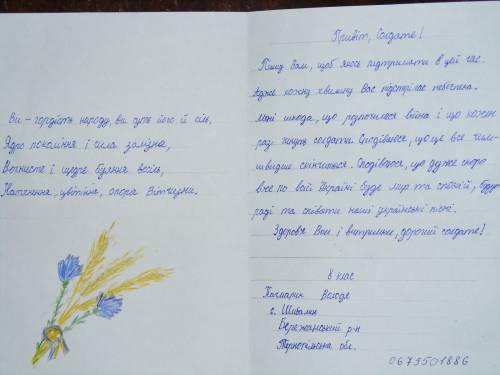 Ви - гордість народу, ви суть його й сіль,
Ядро покоління і сила залізна,
Вогнисте і щедре буяння весіль,
Натхнення, цвітіння, опора Вітчизни.
Привіт, Солдате!
Пишу Вам, щоб якось підтримати в цей час.
Адже кожну хвилину Вас підстерігає небезпека.
Мені шкода, що розпочалася війна і що кожен
раз гинуть солдати. Сподіваюся, що це все чим-
швидше скінчиться. Сподіваюся, що дуже скоро
вже по всій Україні буде мир та спокій, будуть
раді та співати наші українські пісні.
Здоров'я Вам і витримки, дорогий солдате!
8 клас
Володя
с. Шибалин
Бережанський р-н
Тернопільська обл.
0673501886